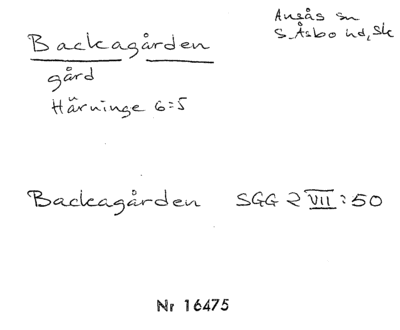 Backagården
Ausås sn
S. Åsbo hd, Sk
gård
Härninge 6:5
Backagården SGG 2 VII:50
Nr 16475